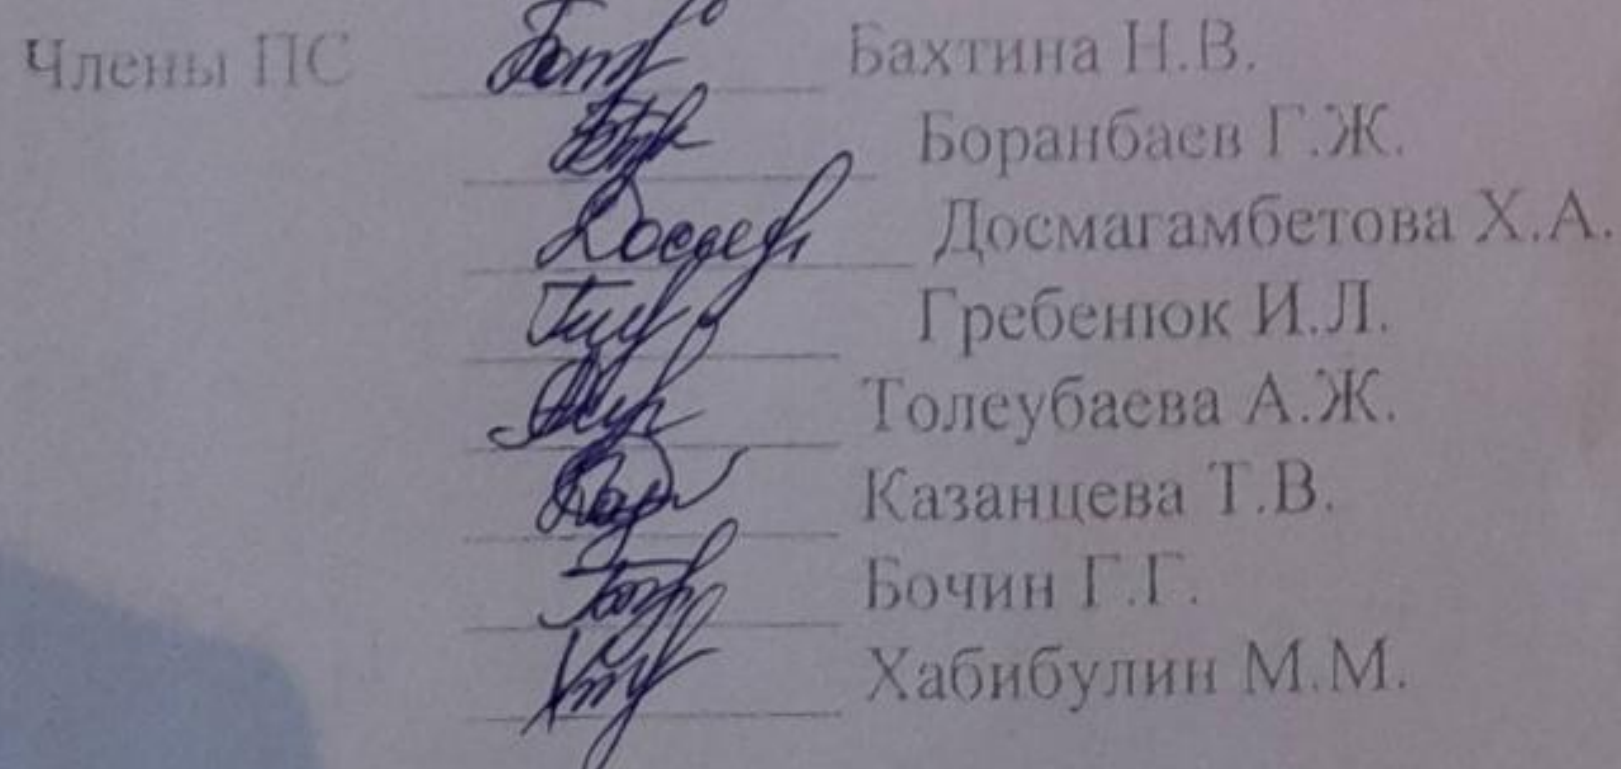 Члены ПС Бахтина Н.В.
Боранбаев Г.Ж.
Досмагамбетова Х.А.
Гребенюк И.Л.
Толеубаева А.Ж.
Казанцева Т.В.
Бочин Г.Г.
Хабибулин М.М.